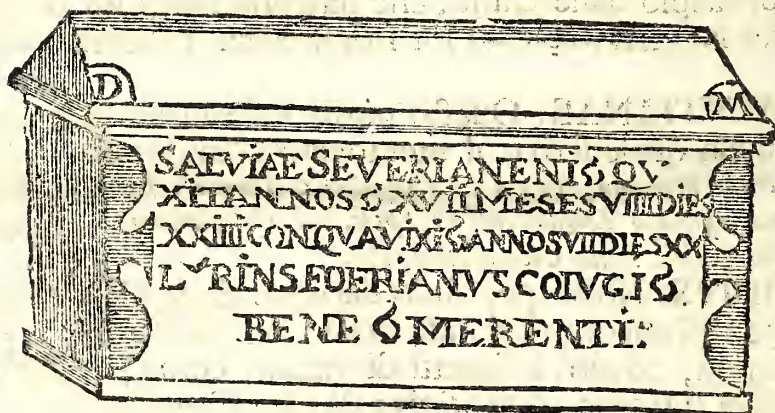 D M
SALVIAE SEVERIANENI QV
XIT ANNOS XVII MESES VIIII DIES
XXIIII CON QVA VIXI ANNOS VII DIES XX
L RINS FOERIANVS COIVGI
BENE MERENTI